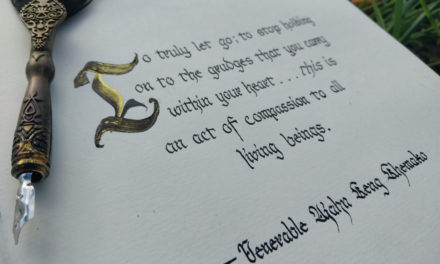 To truly let go; to stop holding
on to the grudges that you carry
within your heart . . . this is
an act of compassion to all
living beings.
— Venerable